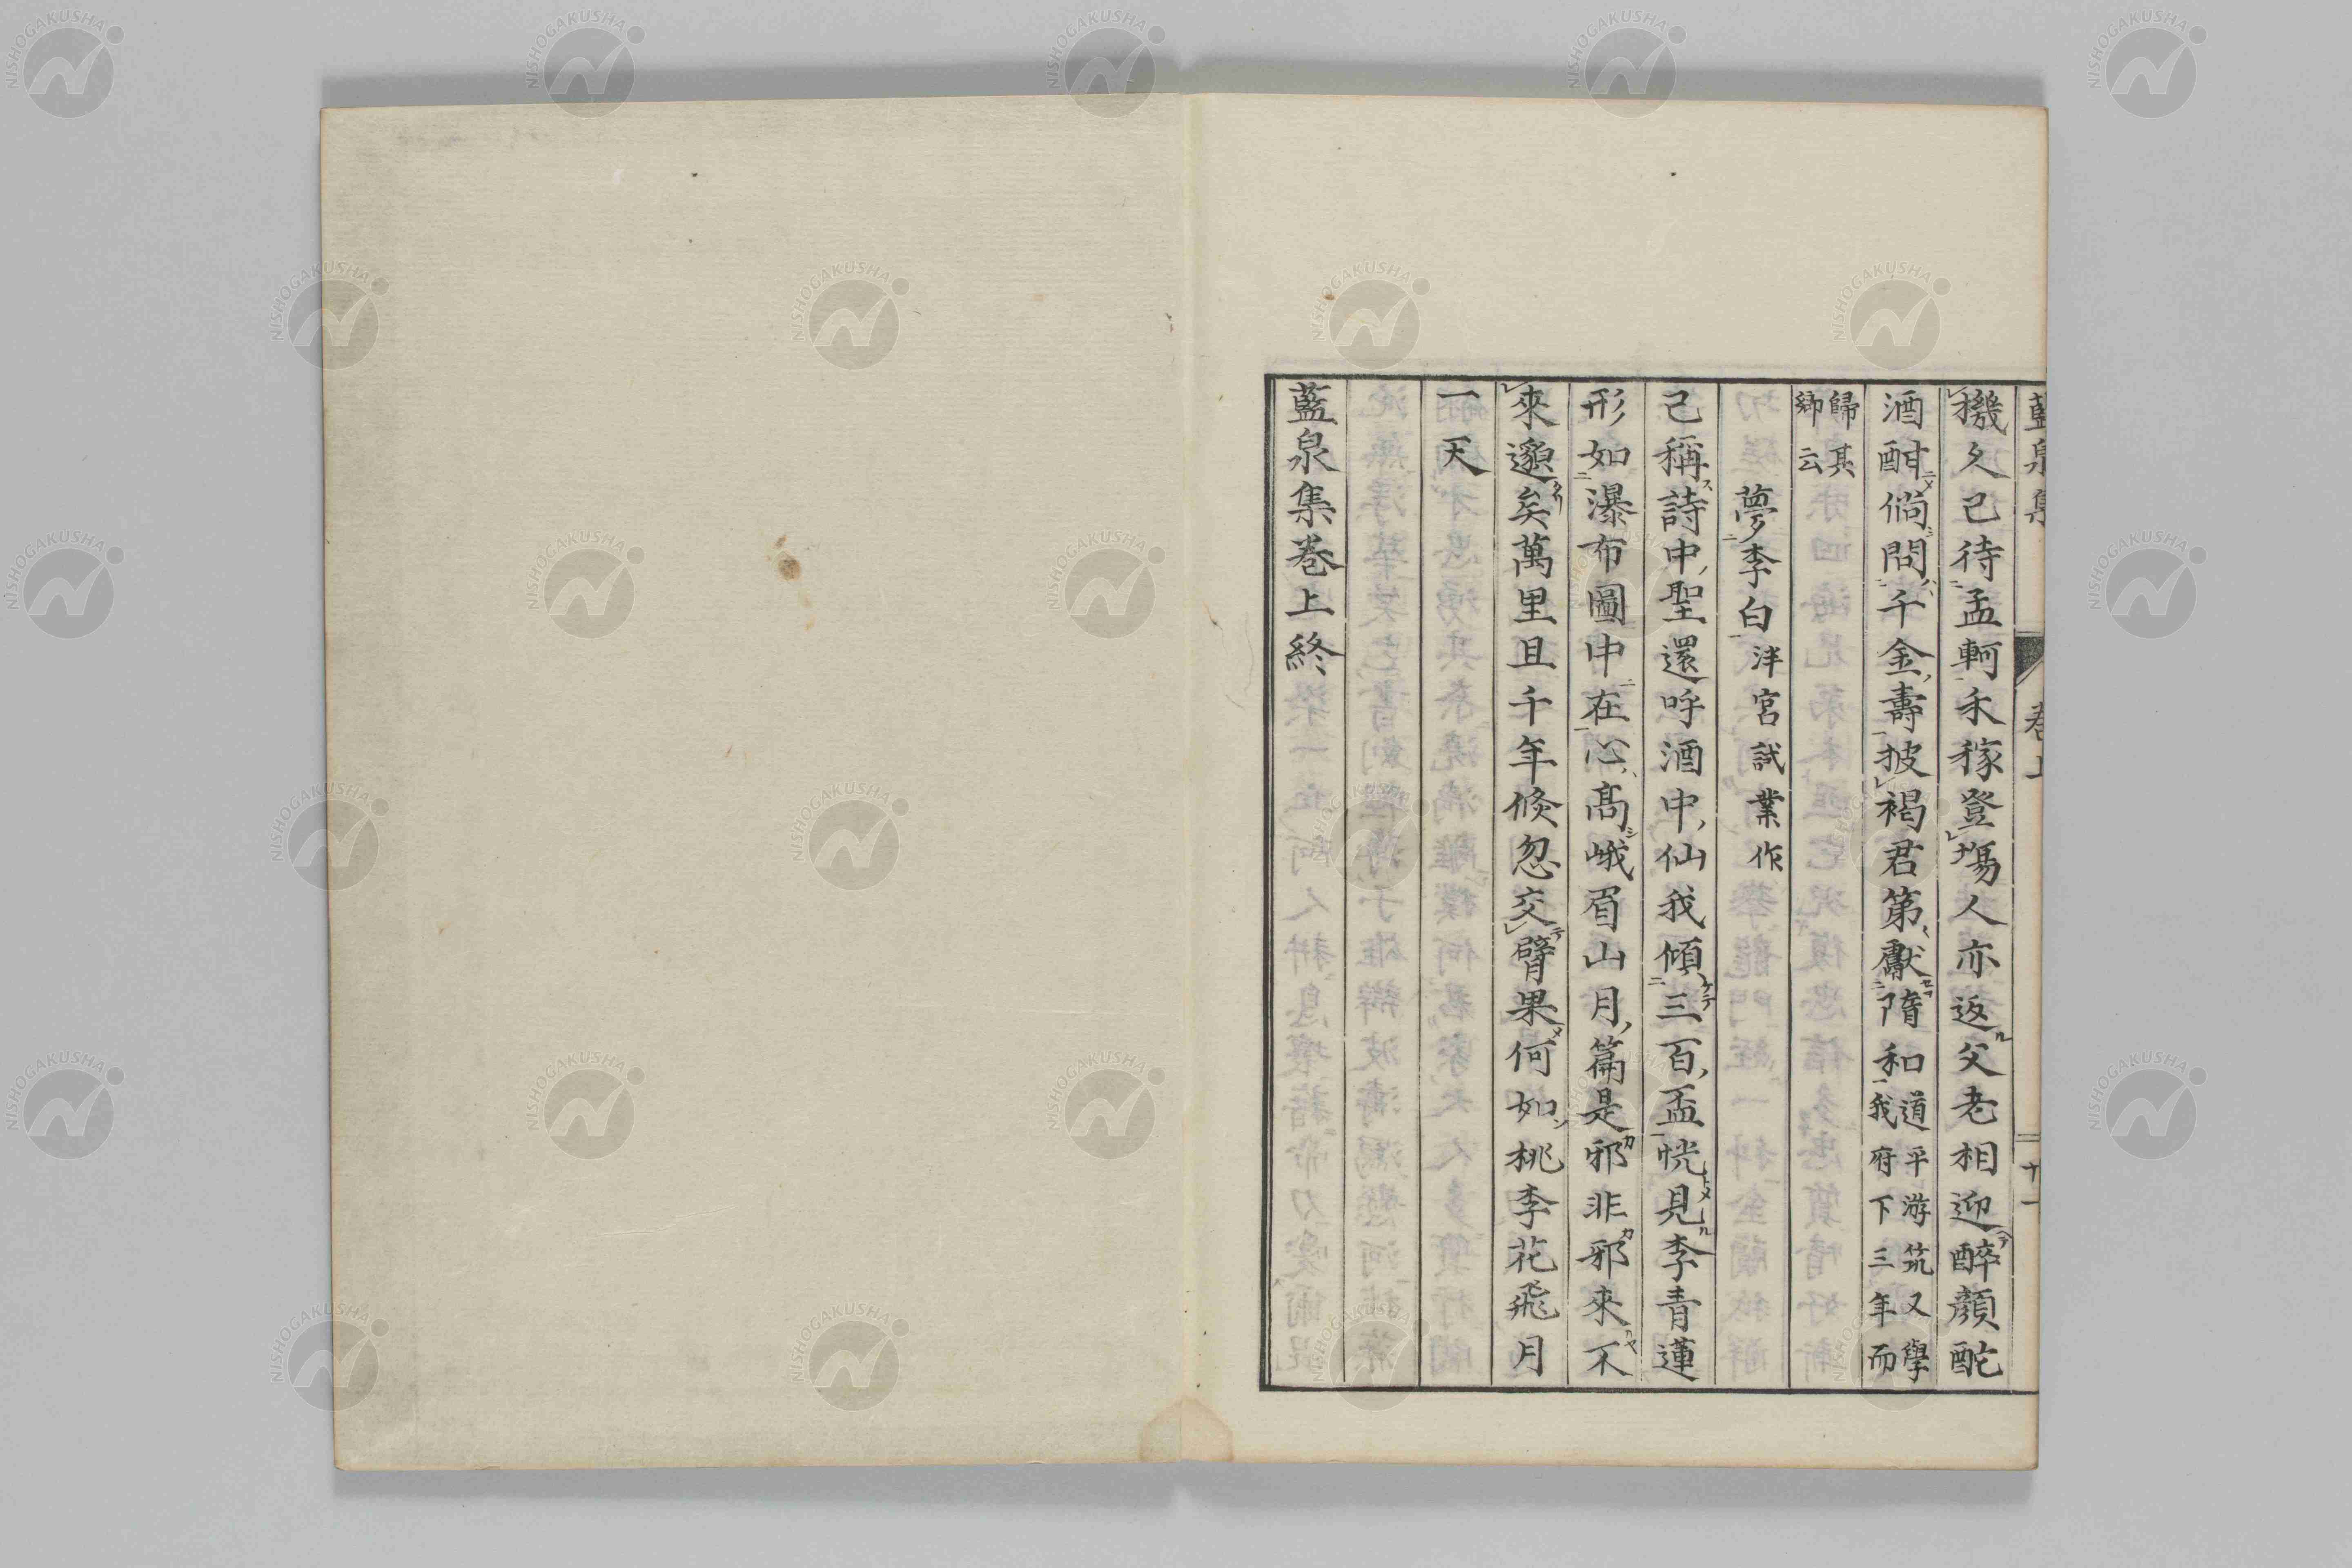 藍泉集 卷上 十一
機久已待孟軻禾稼登場人亦返父老相迎醉顏酡
酒酣倘問千金壽披褐君第獻隋和道平游筑又學我府下三年而
歸其鄉云
夢李白泮宮試業作
已稱詩中聖還呼酒中仙我傾三百盃恍見李青蓮
形如瀑布圖中在心高峨眉山月篇是邪非邪來不
來邈矣萬里且千年倏忽交臂果何如桃李花飛月
一天
藍泉集卷上終